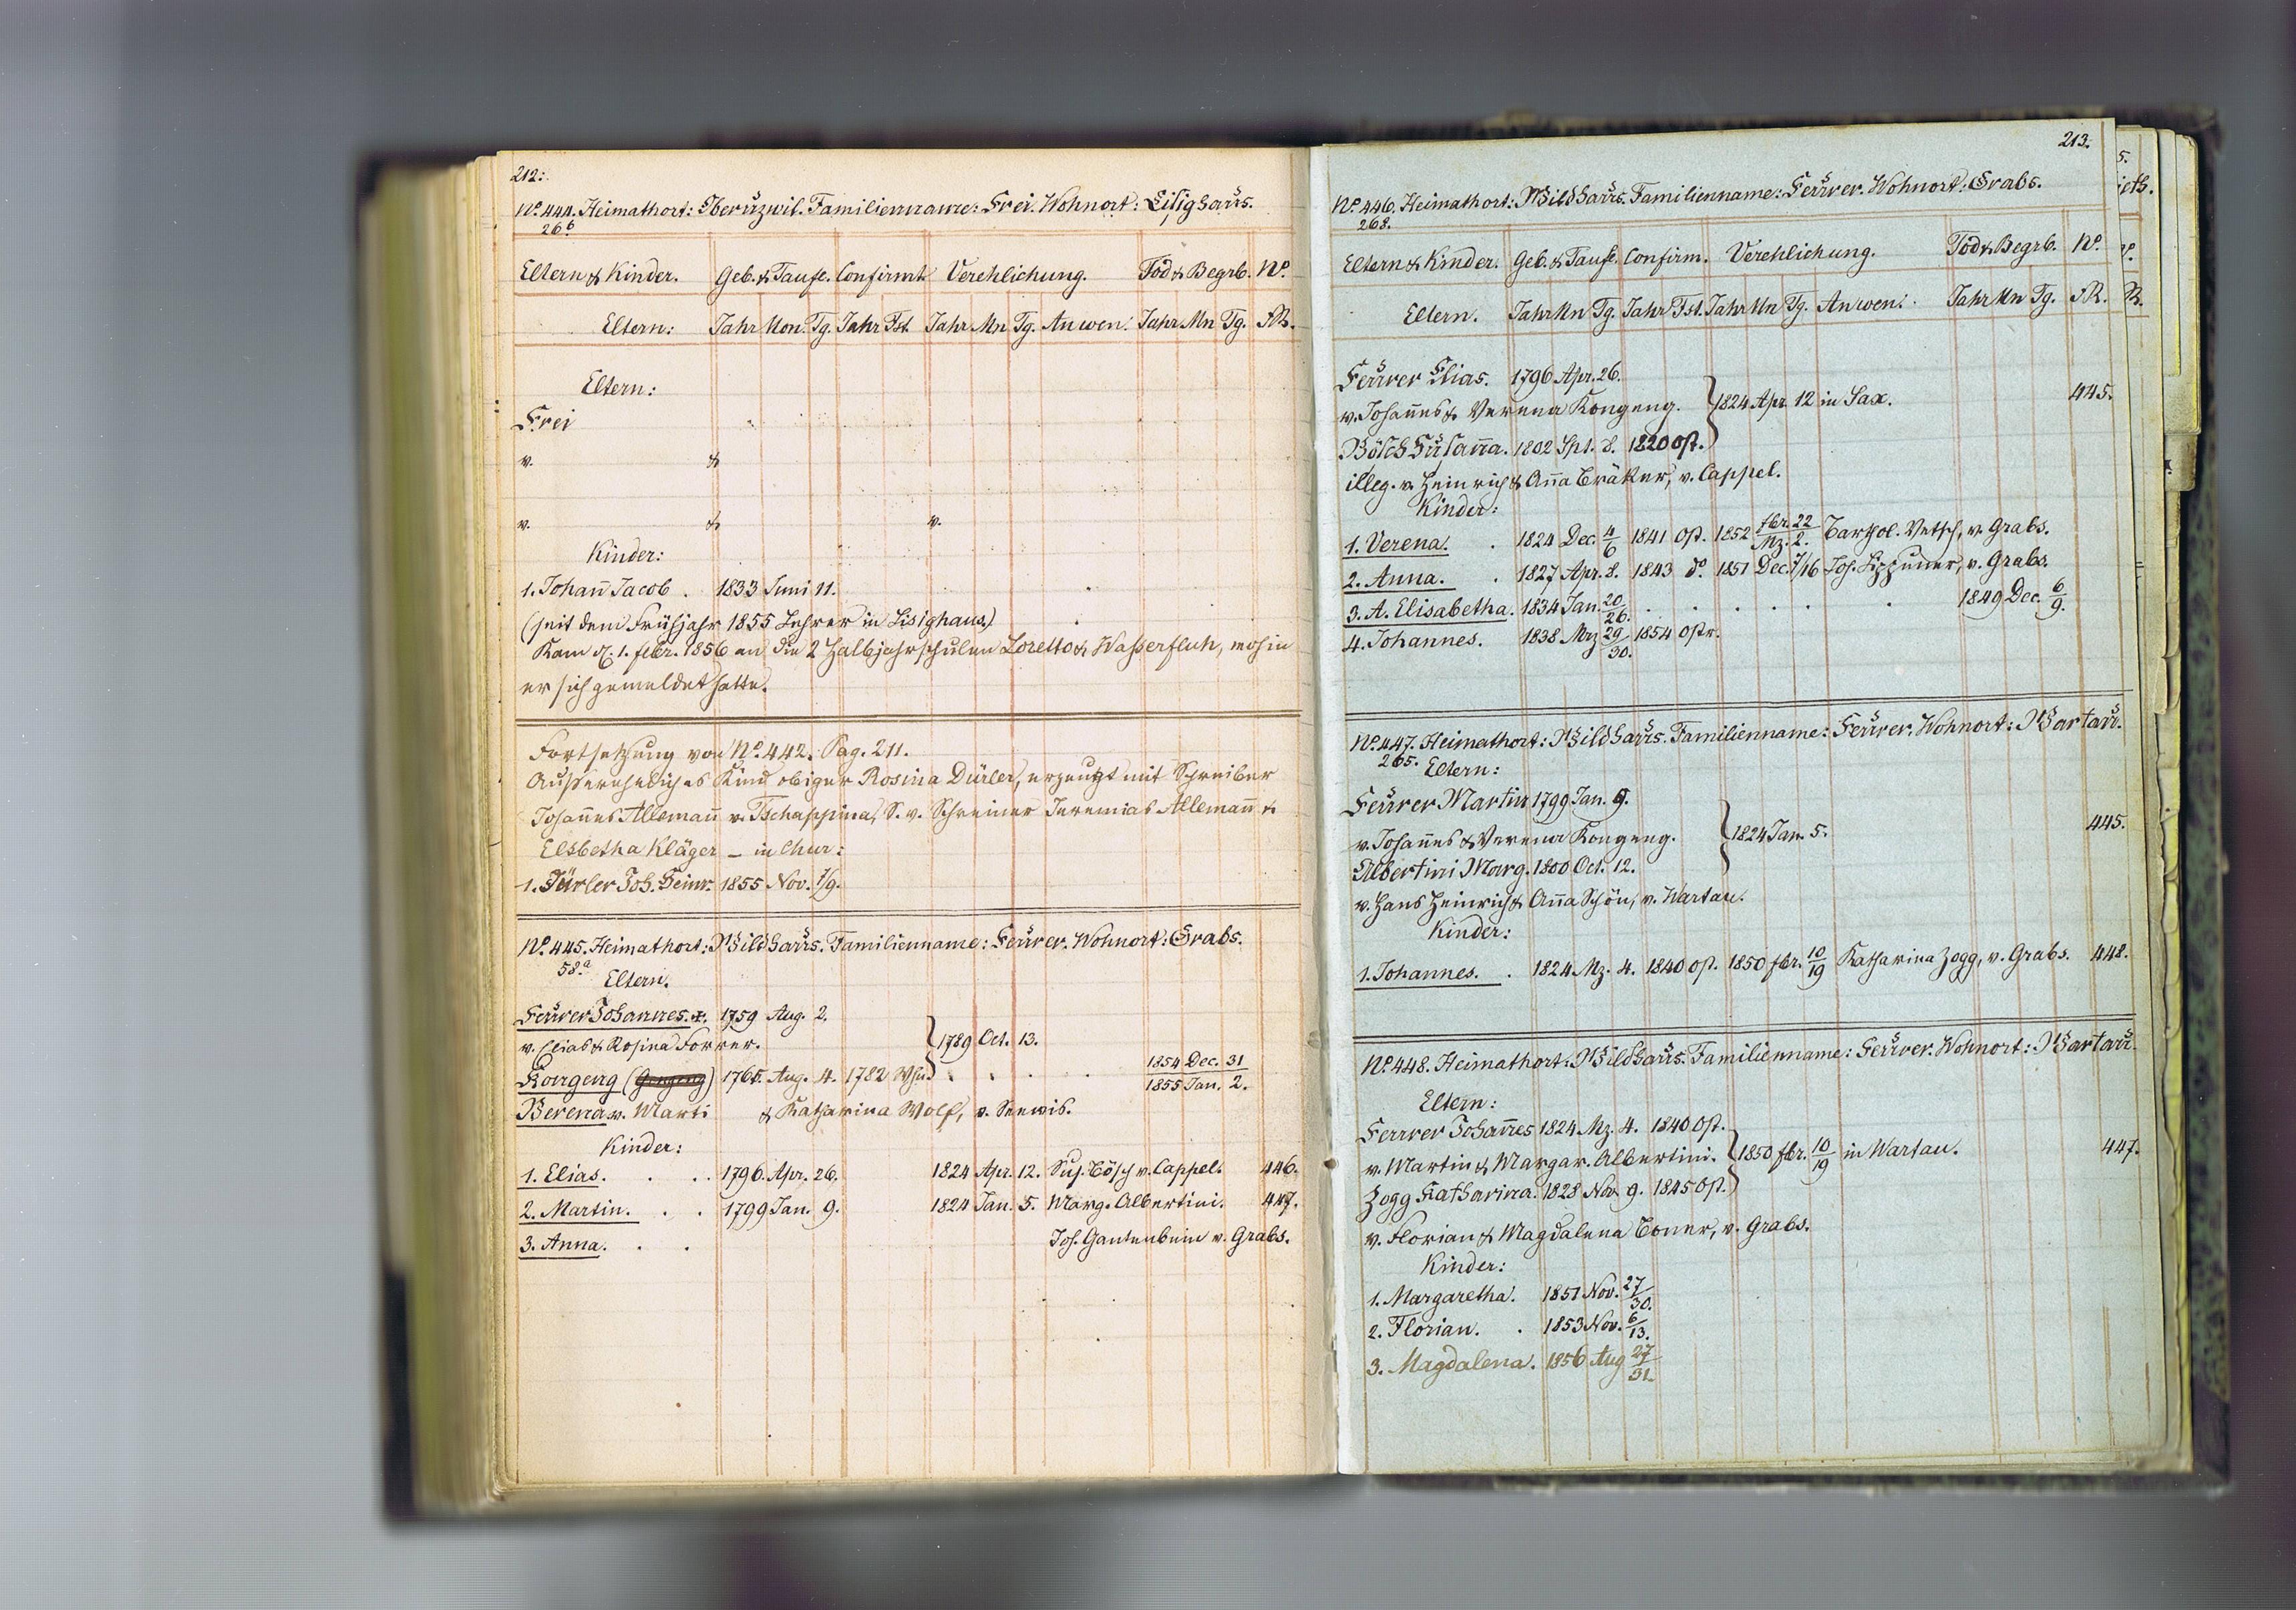 212.
No. 444. Heimathort: Oberuzwil. Familienname: Frei. Wohnort: Lisighaus.
26b
Eltern & Kinder. Geb. & Taufe. Confirmt. Verehlichung. Tod & Begrb. No.
Eltern: Jahr Mon. Tg. Jahr Fst. Jahr Mn Tg. Anwen. Jahr Mn Tg. R.
Eltern:
Frei
v. &
v. & v.
Kinder:
1. Johañ Jacob. 1833 Juni 11.
(seit dem Frühjahr 1855 Lehrer in Lisighaus)
Kam d. 1. febr. 1856 an die 2 Halbjahrschulen Loretto & Wasserfluh, wohin
er sich gemeldet hatte.
Fortsetzung von No. 442. Pag. 211.
Außereheliches Kind obiger Rosina Dürler, erzeugt mit Schreiber
Johañes Allemañ v. Tschappina, S. v. Schreiner Jeremias Allemañ &
Elsbetha Kläger – in Chur:
1. Dürler Joh. Heinr. 1855 Nov. 1/9.
No. 445. Heimathort: Wildhaus. Familienname: Feurer. Wohnort: Grabs.
58.a Eltern.
Feurer Johannes. +. 1759 Aug. 2.
v. Elias & Rosina Forrer. } 1789 Oct. 13.
Kongeng (Gengeng) 1765. Aug. 4. 1782 Whn. . . . . 1854 Dec. 31 / 1855 Jan. 2.
Verena v. Marti & Katharina Wolf, v. Seewis.
Kinder:
1. Elias. . . . 1796. Apr. 26. 1824 Apr. 12. Sus. Bösch v. Cappel. 446.
2. Martin. . . 1799 Jan. 9. 1824 Jan. 5. Marg. Albertini. 447.
3. Anna. . . Joh. Gantenbein v. Grabs.
213.
No. 446. Heimathort: Wildhaus. Familienname: Feurer. Wohnort: Grabs.
268.
Eltern & Kinder. Geb. & Taufe. Confirm. Verehlichung. Tod & Begrb. No.
Eltern. Jahr Mn Tg. Jahr Fst. Jahr Mn Tg. Anwen. Jahr Mn Tg. R.
Feurer Elias. 1796 Apr. 26.
v. Johañes & Verena Kongeng. } 1824 Apr. 12 in Sax. 445.
Bösch Susaña. 1802 Spt. 8. 1820 Ost.
illeg. v. Heinrich & Aña Bräker, v. Cappel.
Kinder:
1. Verena. . 1824 Dec. 4/6 1841 Ost. 1852 fbr. 22 / Mz. 2. Barthol. Vetsch, v. Grabs.
2. Anna. . 1827 Apr. 8. 1843 do. 1851 Dec. 7/16 Joh. Lippuner, v. Grabs.
3. A. Elisabetha. 1834 Jan. 20/26. . . . . . . 1849 Dec. 6/9.
4. Johannes. 1838 Mrz 29/30. 1854 Ostr.
No. 447. Heimathort: Wildhaus. Familienname: Feurer. Wohnort: Wartau.
265. Eltern:
Feurer Martin 1799 Jan. 9.
v. Johañes & Verena Kongeng. } 1824 Jan. 5. 445.
Albertini Marg. 1800 Oct. 12.
v. Hans Heinrich & Aña Schön, v. Wartau.
Kinder:
1. Johannes. . 1824 Mz. 4. 1840 Ost. 1850 fbr. 10/19 Katharina Zogg, v. Grabs. 448.
No. 448. Heimathort: Wildhaus. Familienname: Feurer. Wohnort: Wartau.
Eltern:
Feurer Johañes 1824 Mz. 4. 1840 Ost.
v. Martin & Margar. Albertini. } 1850 fbr. 10/19 in Wartau. 447.
Zogg Katharina. 1828 Nov. 9. 1845 Ost.
v. Florian & Magdalena Boner, v. Grabs.
Kinder:
1. Margaretha. 1851 Nov. 27/30.
2. Florian. . 1853 Nov. 6/13.
3. Magdalena. 1856 Aug 27/31.